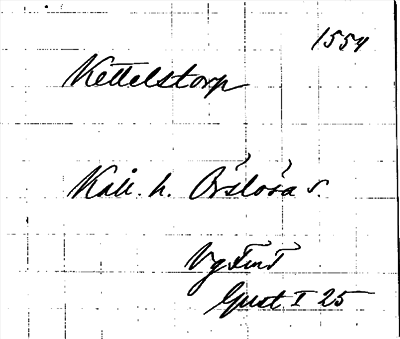 1554
Kettelstorp
Kåll. h. Örslösa s.
Vg
Gust. I 25